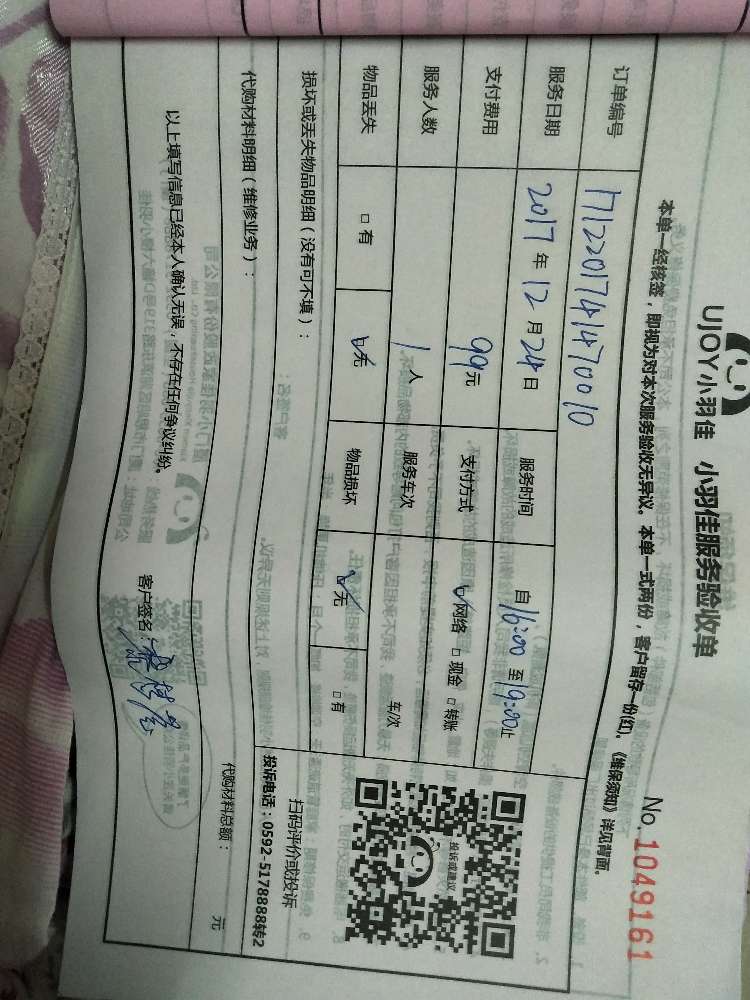 UJOY小羽佳 小羽佳服务验收单
No. 1049161
本单一经核签，即视为对本次服务验收无异议。本单一式两份，客户留存一份(红)。《维保须知》详见背面。
订单编号 1712201741470010
服务日期 2017年12月24日 服务时间 自16:00至19:00止
支付费用 99元 支付方式 ☑网络 □现金 □转账
服务人数 1人 服务车次 车/次
物品丢失 □有 ☑无 物品损坏 ☑无 □有
损坏或丢失物品明细（没有可不填）：
投诉或建议
扫码评价或投诉
投诉电话：0592-5178888转2
代购材料明细（维修业务）：
代购材料总额： 元
以上填写信息已经本人确认无误，不存在任何争议纠纷。
客户签名：